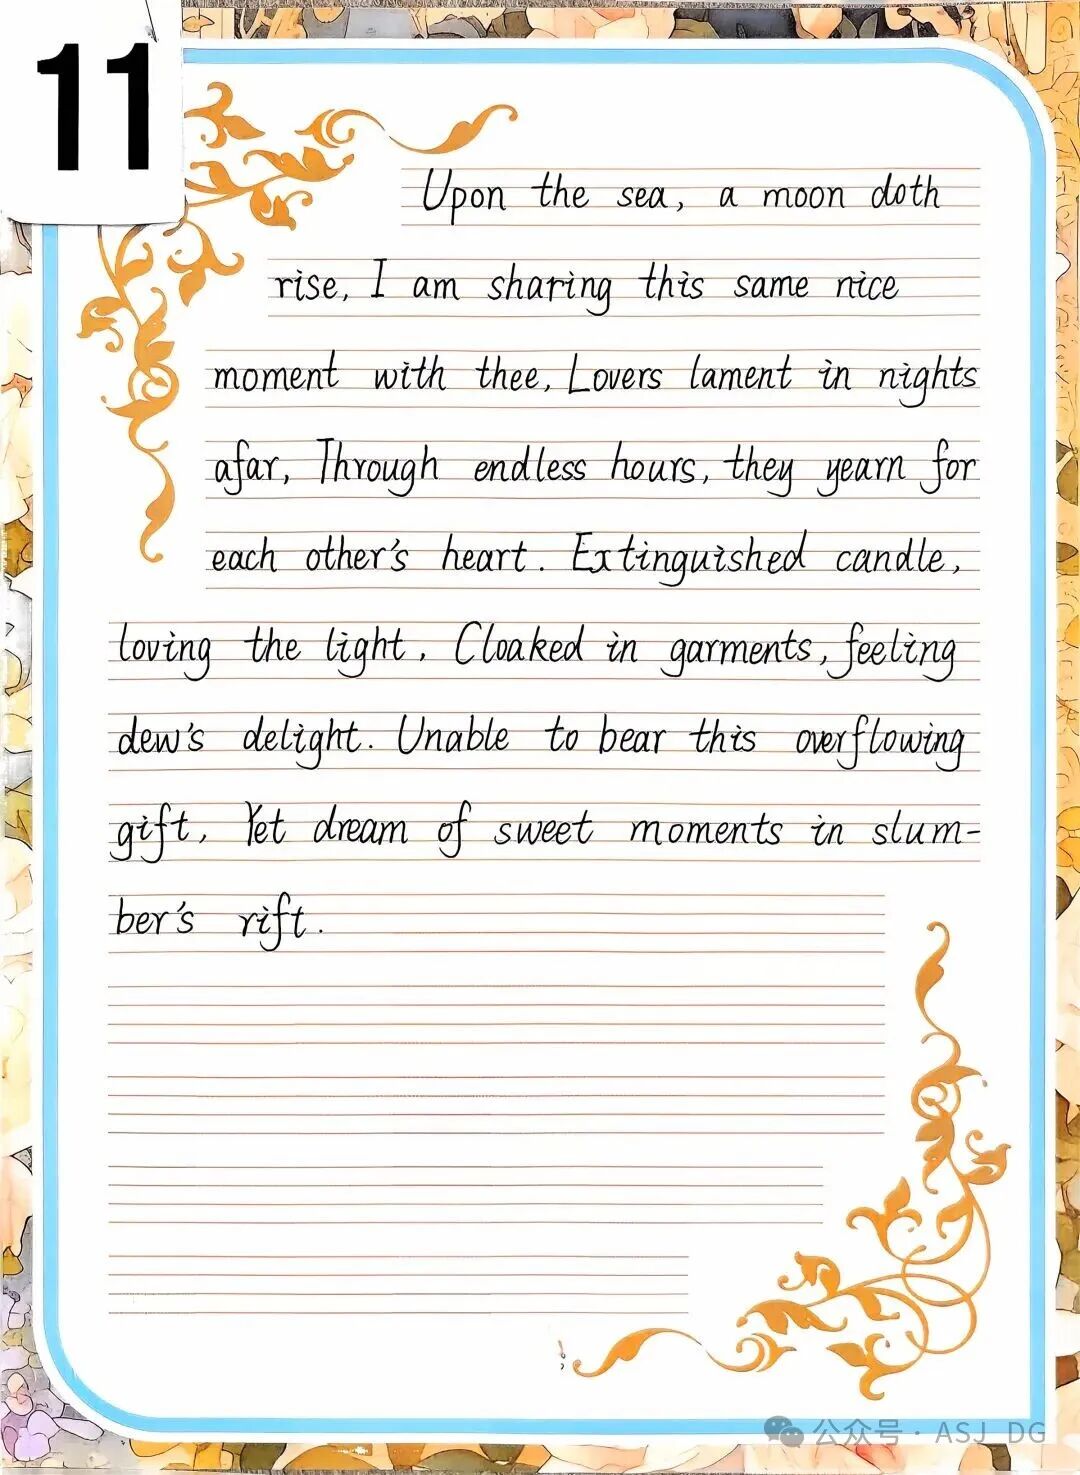 11
Upon the sea, a moon doth
rise, I am sharing this same nice
moment with thee, Lovers lament in nights
afar, Through endless hours, they yearn for
each other's heart. Extinguished candle,
loving the light, Cloaked in garments, feeling
dew's delight. Unable to bear this overflowing
gift, Yet dream of sweet moments in slum-
ber's rift.
公众号·ASJ_DG